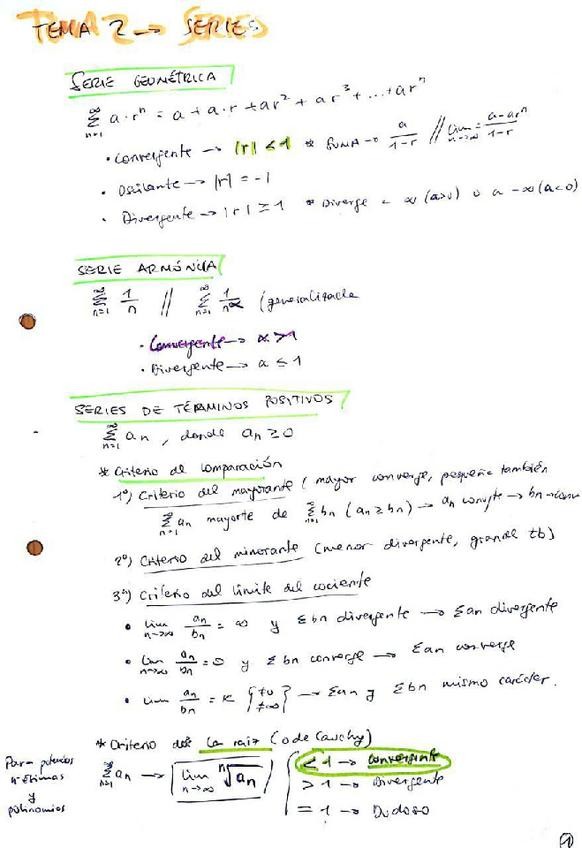 TEMA 2 → SERIES
SERIE GEOMÉTRICA
∞Σn=1 a·rⁿ = a + a·r + ar² + ar³ + ... + arⁿ
· Convergente → |r| < 1 * SUMA → a/(1-r) // lim n→∞ = (a-arⁿ)/(1-r)
· Oscilante → |r| = -1
· Divergente → |r| ≥ 1 * Diverge a ∞ (a>0) o a -∞ (a<0)
SERIE ARMÓNICA
∞Σn=1 1/n // ∞Σn=1 1/n^α (generalizada
· Convergente → α > 1
· Divergente → α ≤ 1
SERIES DE TÉRMINOS POSITIVOS
∞Σn=1 an, donde an ≥ 0
* Criterio de comparación
1º) Criterio del mayorante (mayor converge, pequeña también
∞Σn=1 an mayorte de ∞Σn=1 bn (an ≥ bn) → an convgte → bn → conv
2º) Criterio del minorante (menor divergente, grande tb)
3º) Criterio del límite del cociente
· lim n→∞ an/bn = ∞ y Σbn divergente → Σan divergente
· lim n→∞ an/bn = 0 y Σbn converge → Σan converge
· lim an/bn = K {≠0 ≠∞} → Σan y Σbn mismo carácter.
* Criterio de la raíz (o de Cauchy)
Para potencias
n-ésimas
y
polinomios
∞Σn=1 an → lim n→∞ ⁿ√an
< 1 → convergente
> 1 → Divergente
= 1 → Dudoso
1